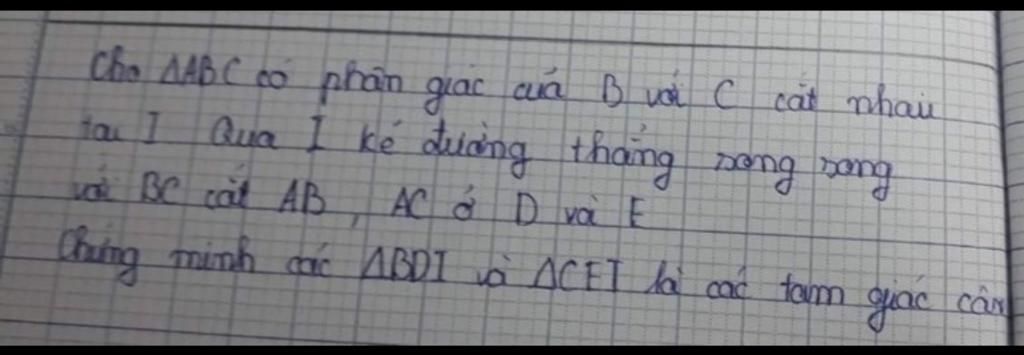 Cho ΔABC có phân giác của B với C cắt nhau
tại I Qua I kẻ đường thẳng song song
với BC cắt AB, AC ở D và E
Chứng minh các ΔBDI và ΔCEI là các tam giác cân